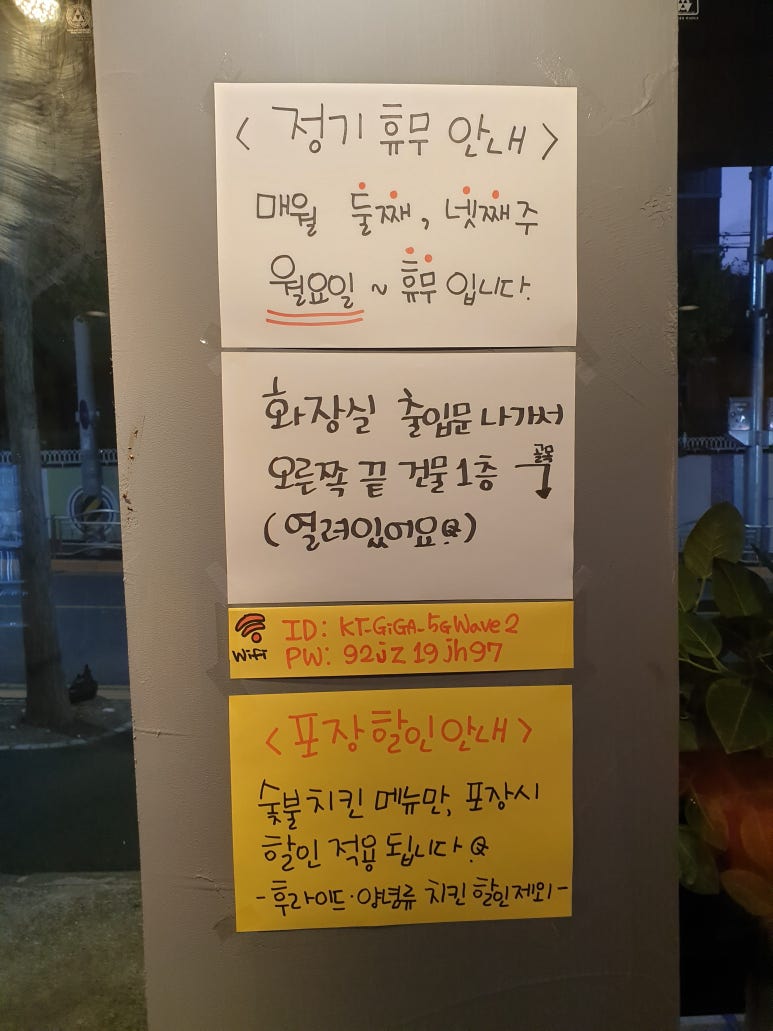 < 정기 휴무 안내 >
매월 둘째, 넷째주
월요일 ~ 휴무 입니다.
화장실 출입문 나가서
오른쪽 끝 건물 1층 골목
(열려있어요)
WiFi
ID: KT_GiGA_5G Wave2
PW: 92jz19jh97
< 포장 할인 안내 >
숯불치킨 메뉴만, 포장시
할인 적용 됩니다
- 후라이드·양념류 치킨 할인 제외 -